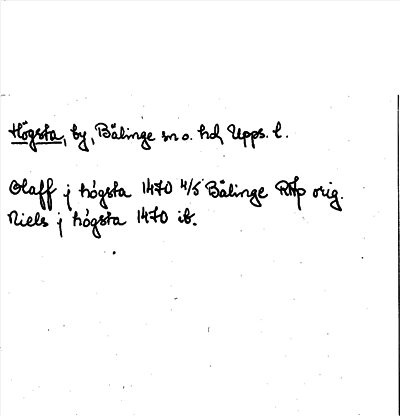 Högsta, by, Bälinge sn o. hd, Upps. l.
Olaff j högsta 1470 4/5 Bälinge RAp orig.
Niels j högsta 1470 ib.